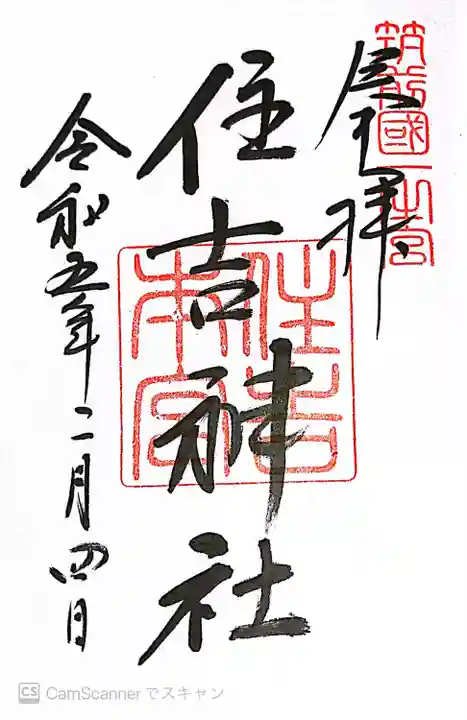 筑前國一之宮
奉拝
住吉神社
住吉本宮
令和五年二月四日
CS CamScannerでスキャン